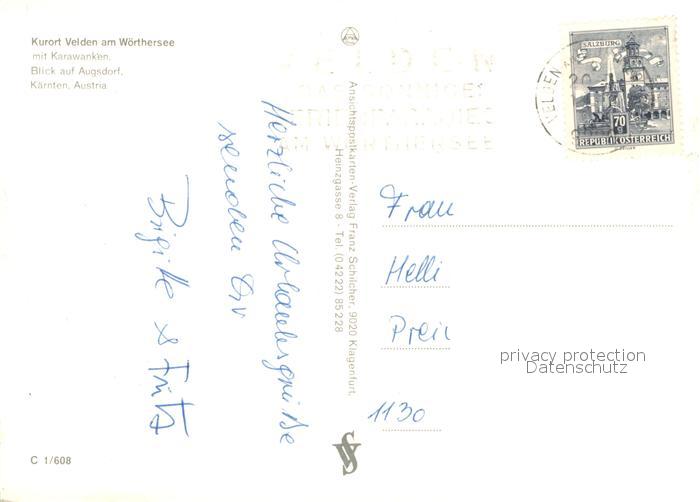 Kurort Velden am Wörthersee
mit Karawanken.
Blick auf Augsdorf.
Kärnten, Austria
Herzliche Urlaubsgrüße
senden
Brigitte & Fritz
C 1/608
Ansichtspostkarten-Verlag Franz Schilcher, 9020 Klagenfurt,
Heinzgasse 8 · Tel. (04222) 85228
VELDEN
AM WÖRTHERSEE
VELDEN
SALZBURG
70
REPUBLIK ÖSTERREICH
Frau
Helli
1130
privacy protection
Datenschutz